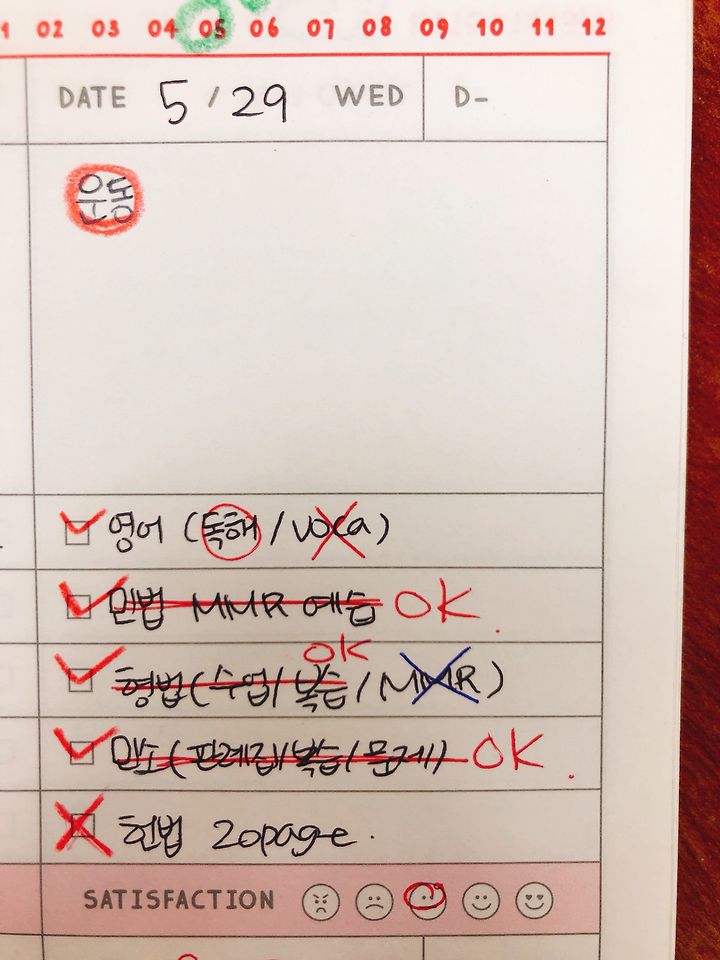 1 02 03 04 05 06 07 08 09 10 11 12
DATE 5/29 WED D-
운동
영어 (독해/voca)
민법 MMR 예습 OK.
OK
형법(수업/복습/MMR)
민소(판례집/복습/문제) OK.
헌법 20page.
SATISFACTION